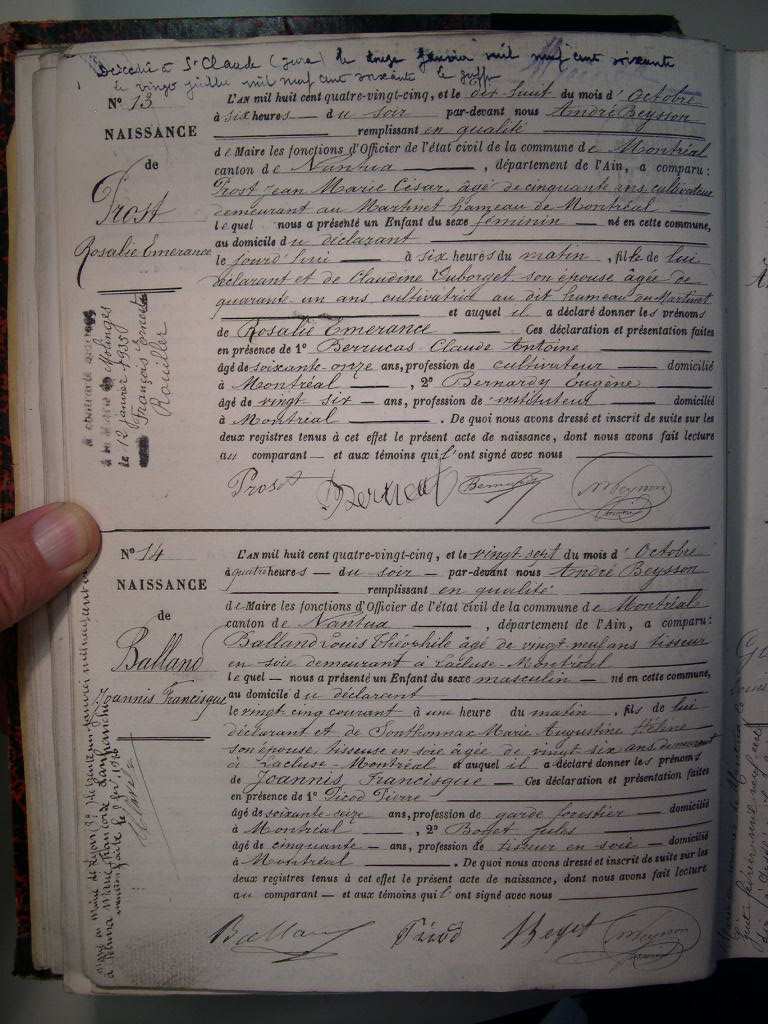 Décédée à St Claude (Jura) le onze janvier mil neuf cent soixante
le vingt juillet mil neuf cent soixante le greffier
N° 13
NAISSANCE
de
Prost
Rosalie Emerance
L'AN mil huit cent quatre-vingt-cinq, et le dix huit du mois d'Octobre
à six heures — du soir — par-devant nous André Beysson
remplissant en qualité
de Maire les fonctions d'Officier de l'état civil de la commune de Montréal
canton de Nantua, département de l'Ain, a comparu:
Prost Jean Marie César, âgé de cinquante ans cultivateur
demeurant au Martinet hameau de Montréal
lequel nous a présenté un Enfant du sexe féminin — né en cette commune,
au domicile du déclarant
le jourd'hui — à six heures du matin, fille de lui
déclarant et de Claudine son épouse âgée de
quarante un ans cultivatrice au dit hameau du Martinet
et auquel il a déclaré donner les prénoms
de Rosalie Emerance — Ces déclaration et présentation faites
en présence de 1° Berrucas Claude Antoine
âgé de soixante-onze ans, profession de cultivateur — domicilié
à Montréal, 2° Bernardy Eugène
âgé de vingt six — ans, profession de instituteur domicilié
à Montréal. De quoi nous avons dressé et inscrit de suite sur les
deux registres tenus à cet effet le présent acte de naissance, dont nous avons fait lecture
au comparant — et aux témoins qui l'ont signé avec nous
Molinges
le 12 janvier 1935
François Ernest
Rouiller
Prost
N° 14
NAISSANCE
de
Balland
Joannis Francisque
L'AN mil huit cent quatre-vingt-cinq, et le vingt sept du mois d'Octobre
à quatre heures — du soir — par-devant nous André Beysson
remplissant en qualité
de Maire les fonctions d'Officier de l'état civil de la commune de Montréal
canton de Nantua, département de l'Ain, a comparu:
Balland Louis Théophile âgé de vingt neuf ans tisseur
en soie demeurant à Lacluse-Montréal
lequel — nous a présenté un Enfant du sexe masculin — né en cette commune,
au domicile du déclarant
le vingt cinq courant à une heure du matin, fils de lui
déclarant et de Sonthonnax Marie Augustine Hélène
son épouse, tisseuse en soie âgée de vingt six ans demeurant
à Lacluse-Montréal et auquel il a déclaré donner les prénoms
de Joannis Francisque — Ces déclaration et présentation faites
en présence de 1° Picod Pierre
âgé de soixante-seize ans, profession de garde forestier — domicilié
à Montréal, 2° Boget Jules
âgé de cinquante — ans, profession de tisseur en soie — domicilié
à Montréal. De quoi nous avons dressé et inscrit de suite sur les
deux registres tenus à cet effet le présent acte de naissance, dont nous avons fait lecture
au comparant — et aux témoins qui l'ont signé avec nous
Picod